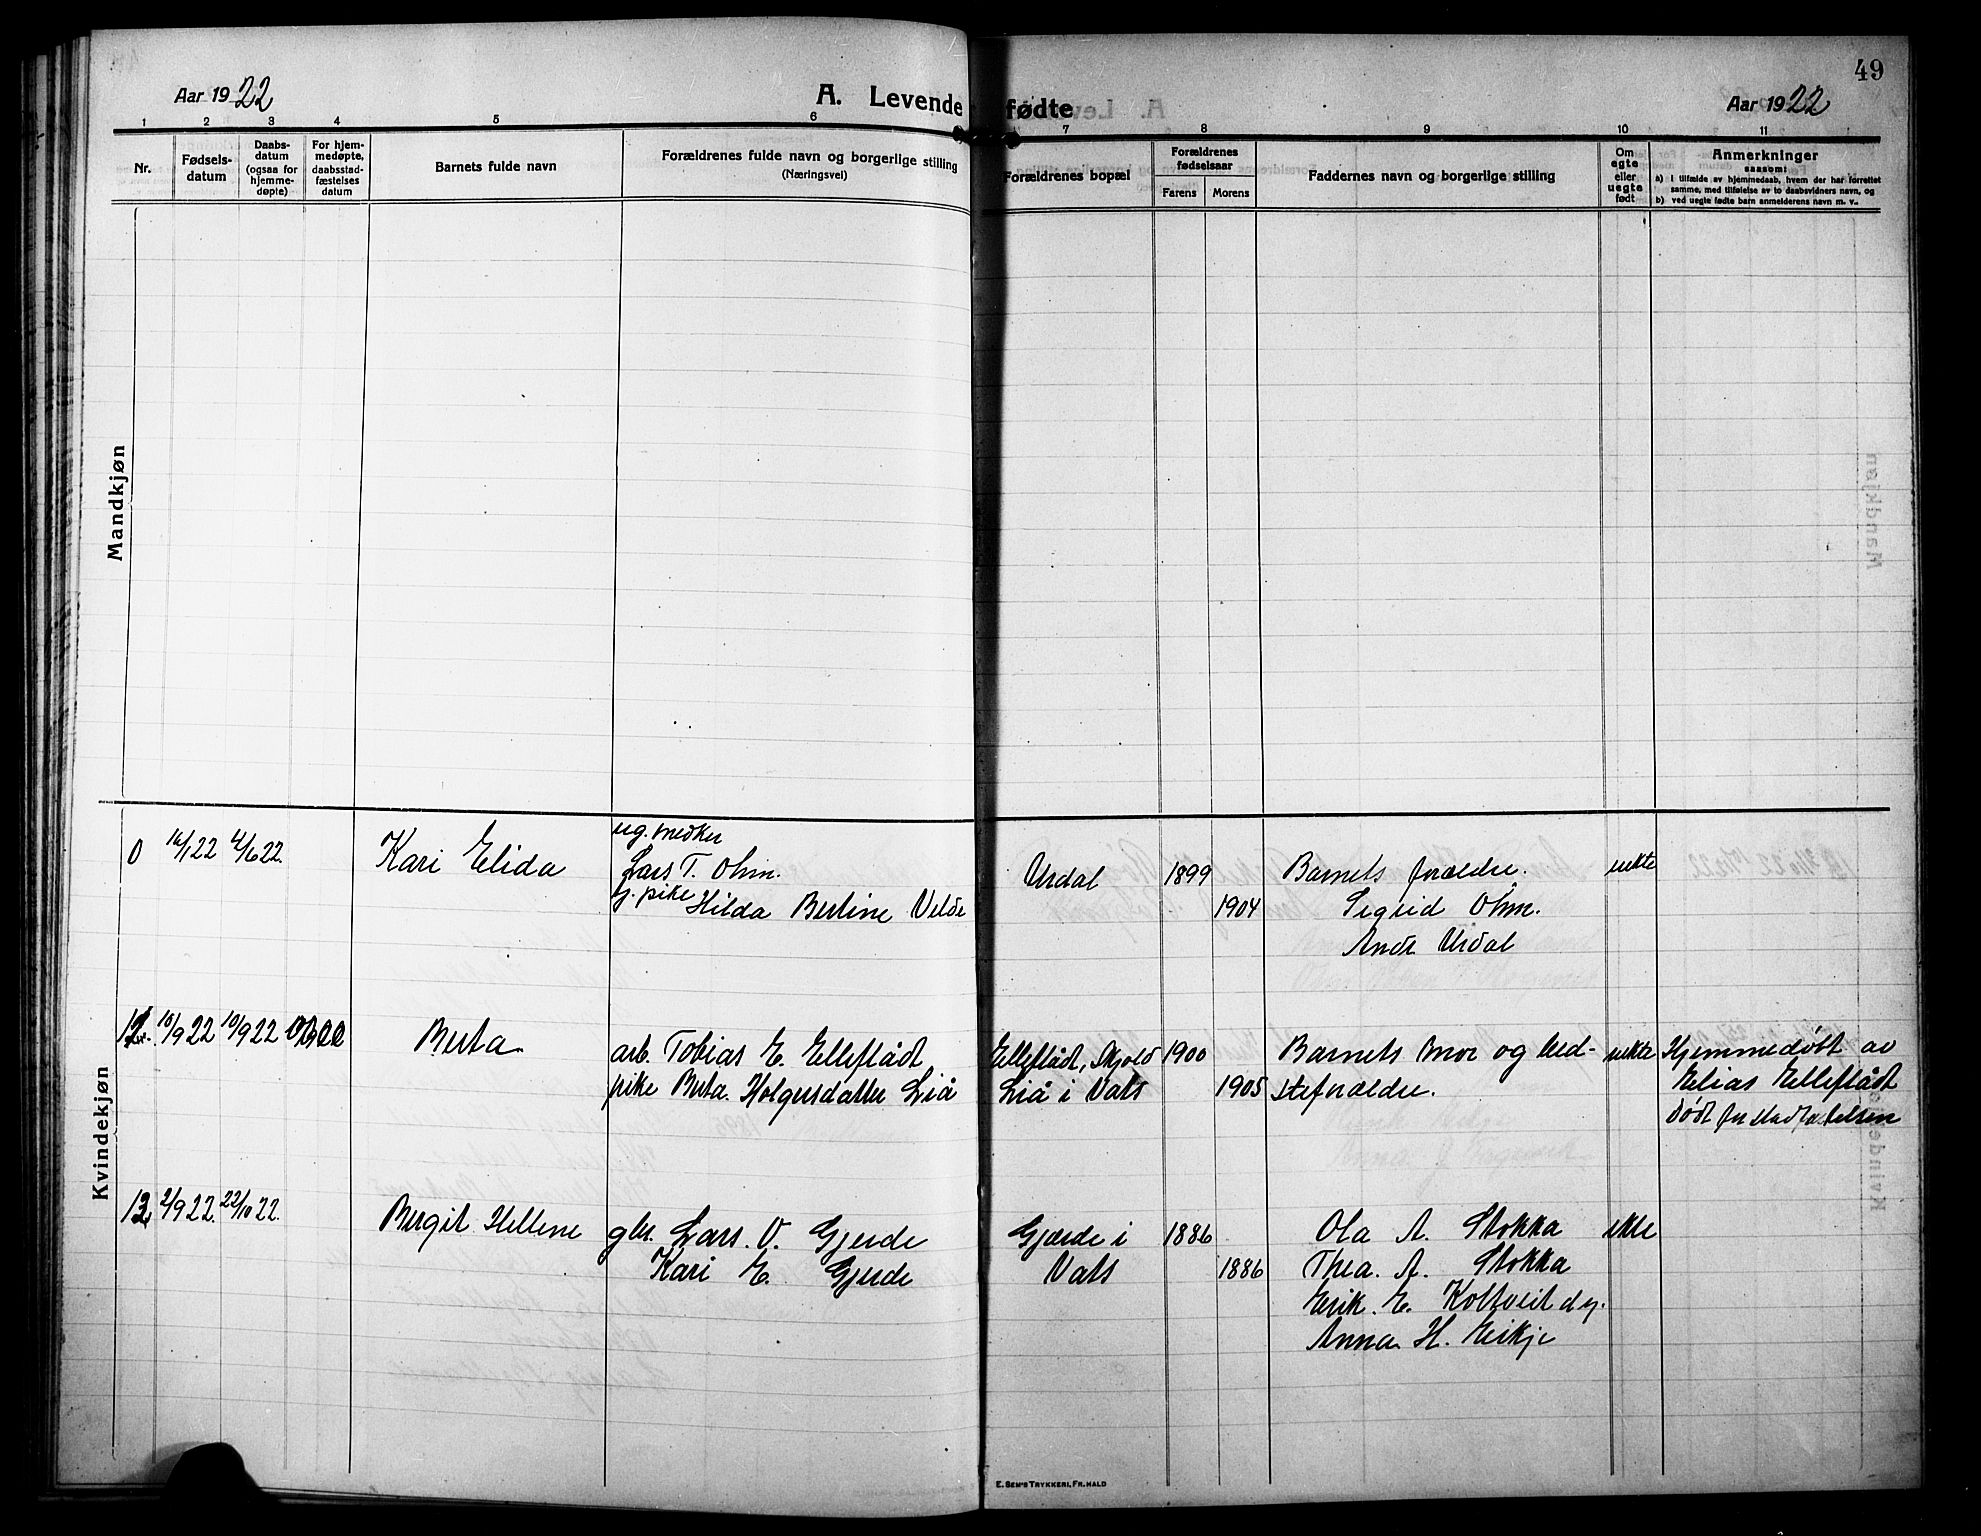 49
Aar 1922
A. Levende fødte
Aar 1922
1 2 3 4 5 6 7 8 9 10 11
Nr.
Fødsels-
datum
Daabs-
datum
(ogsaa for
hjemme-
døpte)
For hjem-
medøpte,
daabsstad-
fæstelses
datum
Barnets fulde navn
Forældrenes fulde navn og borgerlige stilling
(Næringsvei)
Forældrenes bopæl
Forældrenes
fødselsaar
Farens Morens
Faddernes navn og borgerlige stilling
Om
egte
eller
uegte
født
Anmerkninger
saasom:
a) i tilfælde av hjemmedaab, hvem der har forrettet
samme, med tilføielse av to daabsvidners navn, og
b) ved uegte fødte barn anmelderens navn m. v..
Mandkjøn
Kvindekjøn
0 16/1 22 4/6 22 Kari Elida
ug.
Lars T. Ohm. Urdal 1899 Barnets forældre. uekte
g. pike Hilda Bertine Velde 1904 Sigrid Ohm.
Urdal
12. 10/9 22 10/9 22 Berta arb. Tobias E. Elleflådt Elleflådt, Skjold 1900 Barnets mor og bed- uekte Hjemmedøbt av
pike Berta Holgersdatter Liå Liå i Vats 1905 steforældre. Elias Elleflådt
Dødt før stadfæstelsen
13 2/9 22. 22/10 22. Bergit Hellene gbr. Lars. O. Gjerde Gjærde i 1886 Ola A. Stokka ekte
Kari E. Gjerde Vats 1886 Thea. A. Stokka
Erik. E. Koltveit d y.
Anna H. Eikje
E. SEM'S TRYKKERI, FR.HALD